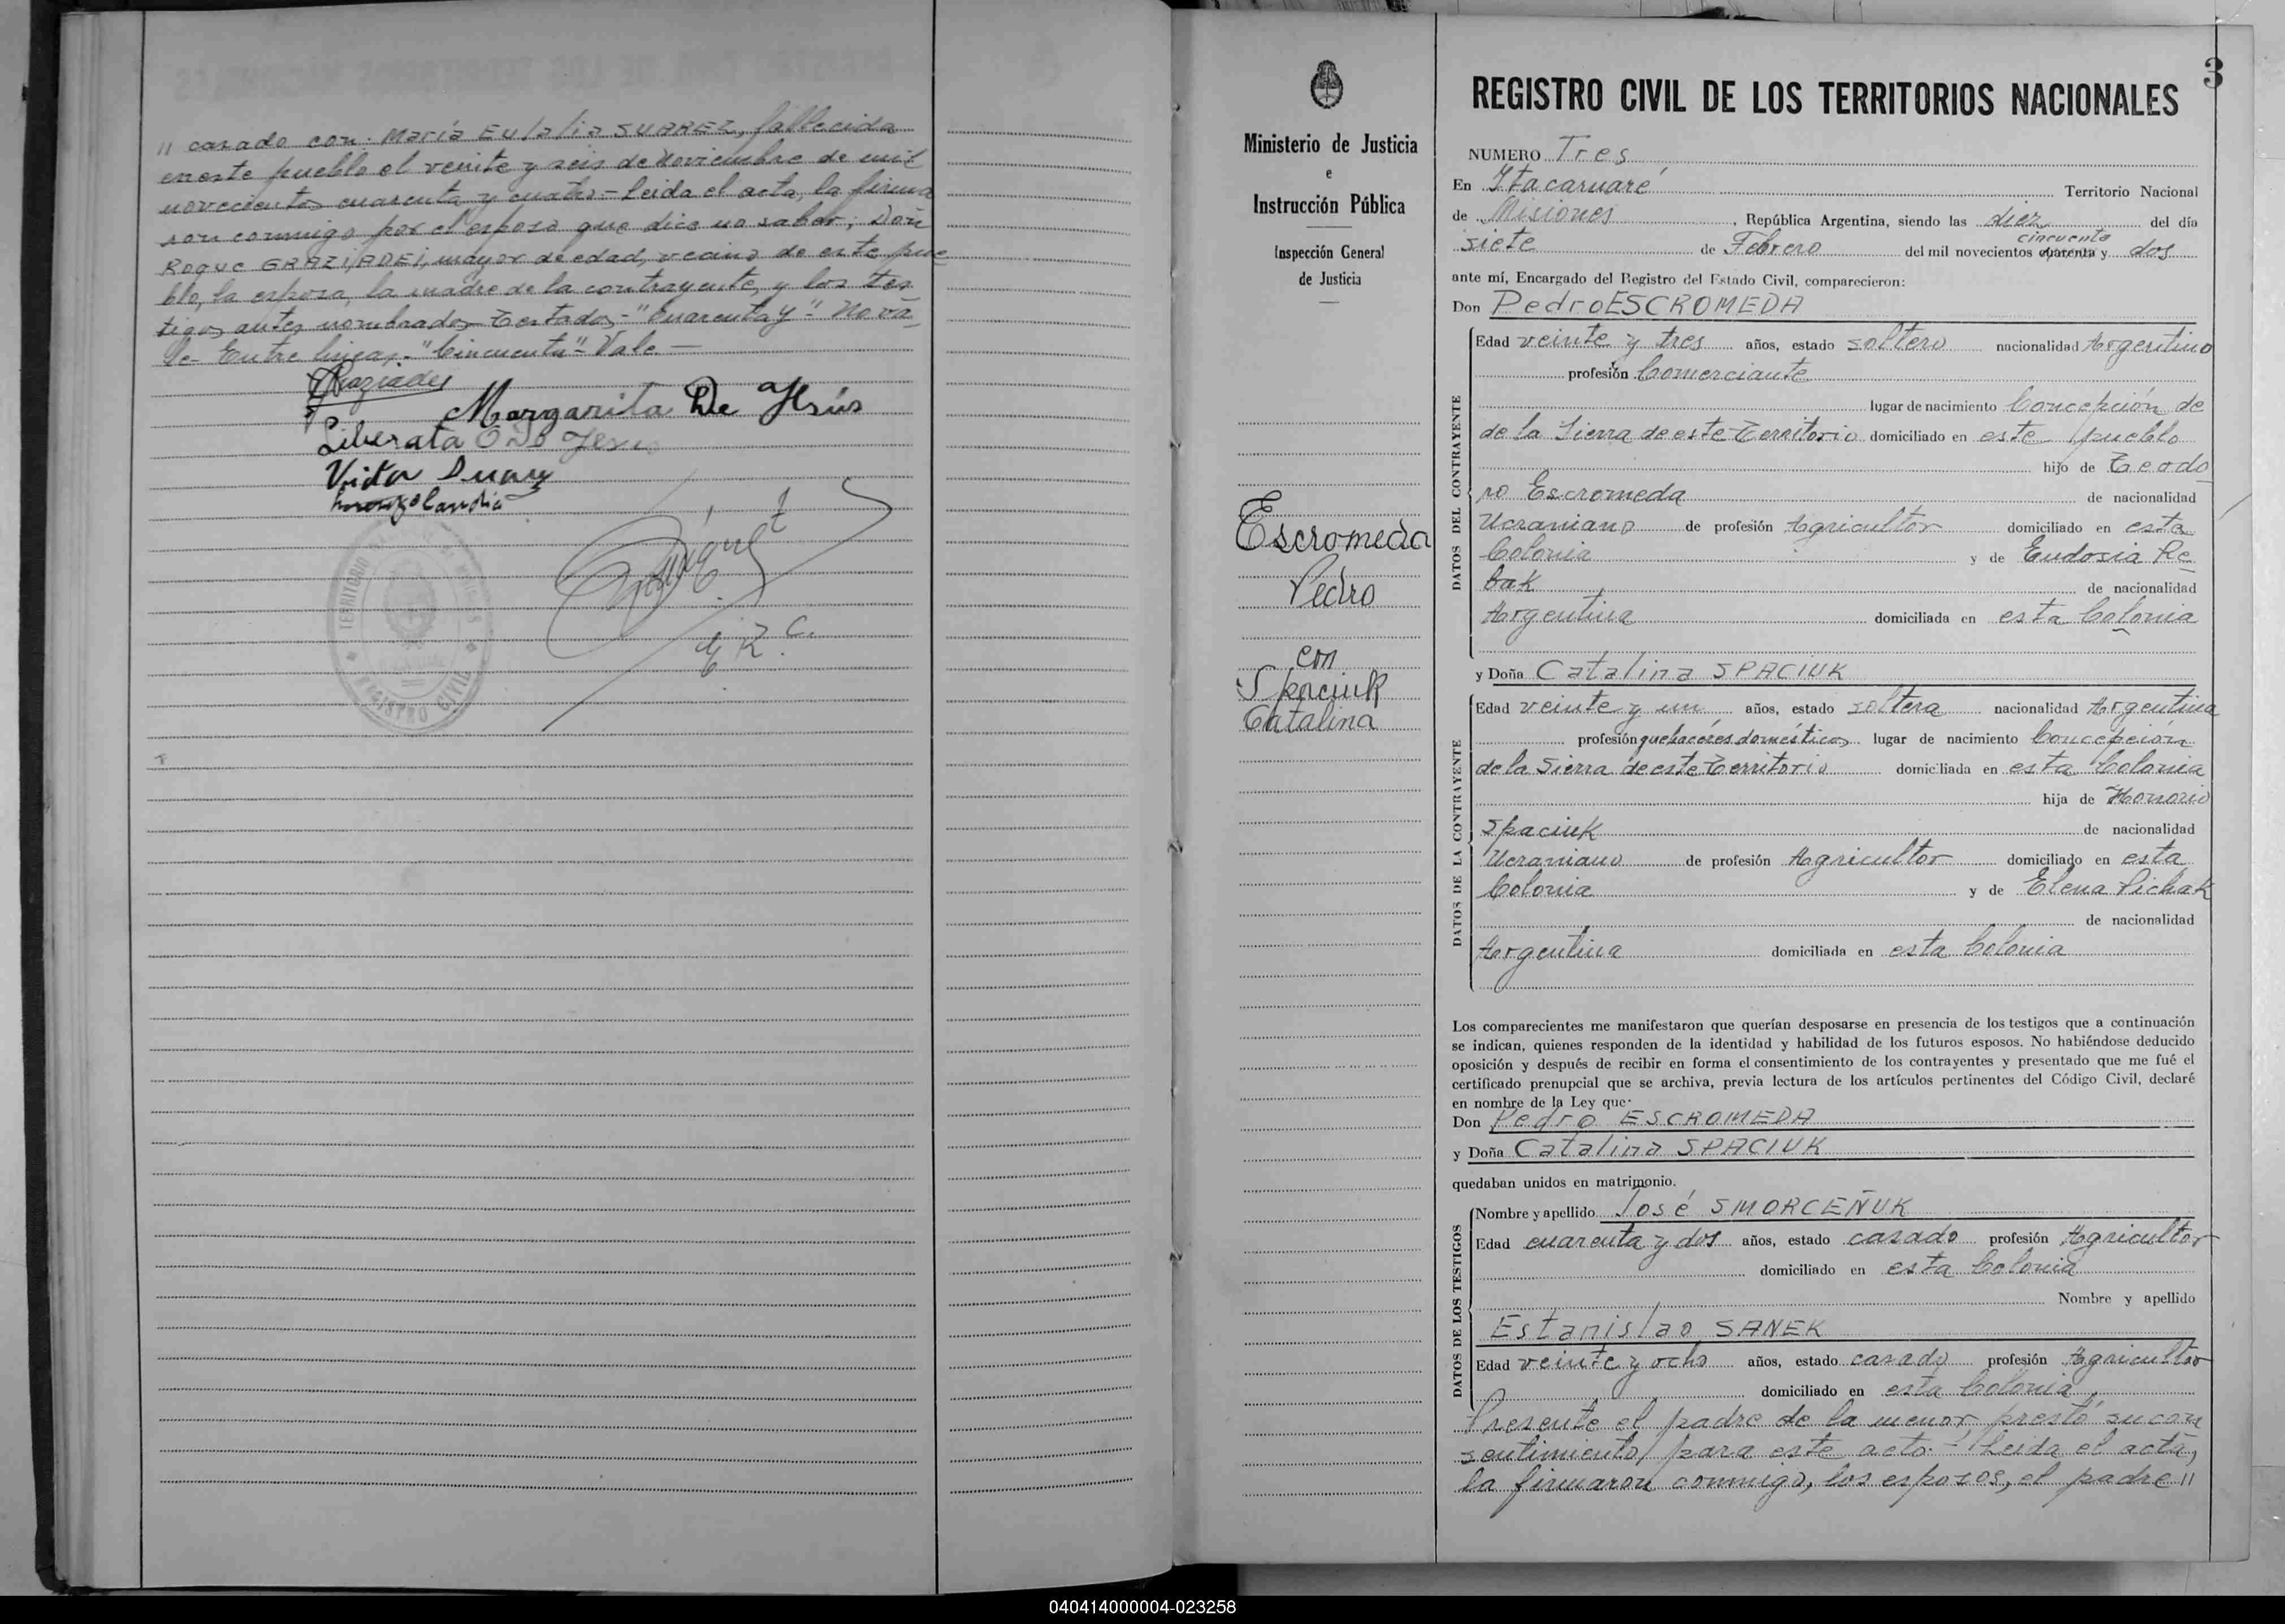 " casado con: María Eulalia SUAREZ, fallecida
en este pueblo el veinte y seis de Noviembre de mil
novecientos cuarenta y cuatro - Leida el acta, la firma
ron conmigo por el esposo que dice no saber; Don
Roque GRAZIADEI, mayor de edad, vecino de este pue
blo, la esposa, la madre de la contrayente, y los tes
tigos antes nombrados - Testados - "Cuarenta y" - No va
le - Entre lineas - "Cincuenta" - Vale -
Graziadei
Margarita De Jesús
Liberata O De Jesus
TERRITORIO
REGISTRO CIVIL
E. R. C.
Ministerio de Justicia
e
Instrucción Pública
Inspección General
de Justicia
Escromeda
Pedro
con
Spaciuk
Catalina
3
REGISTRO CIVIL DE LOS TERRITORIOS NACIONALES
NUMERO Tres
En Itacaruaré Territorio Nacional
de Misiones, República Argentina, siendo las diez del día
cincuenta
siete de Febrero del mil novecientos cuarenta y dos
ante mí, Encargado del Registro del Estado Civil, comparecieron:
Don Pedro ESCROMEDA
DATOS DEL CONTRAYENTE
Edad veinte y tres años, estado soltero nacionalidad Argentino
profesión Comerciante
lugar de nacimiento Concepción de
de la Sierra de este Territorio domiciliado en este pueblo
hijo de Teodo
ro Escromeda de nacionalidad
Ucraniano de profesión Agricultor domiciliado en esta
Colonia y de Eudosia Re
bak de nacionalidad
Argentina domiciliada en esta Colonia
y Doña Catalina SPACIUK
DATOS DE LA CONTRAYENTE
Edad veinte y un años, estado soltera nacionalidad Argentina
profesión quehaceres domésticos lugar de nacimiento Concepción
de la Sierra de este Territorio domiciliada en esta Colonia
hija de Honorio
Spaciuk de nacionalidad
Ucraniano de profesión Agricultor domiciliado en esta
Colonia y de Elena Pichak
de nacionalidad
Argentina domiciliada en esta Colonia
Los comparecientes me manifestaron que querían desposarse en presencia de los testigos que a continuación
se indican, quienes responden de la identidad y habilidad de los futuros esposos. No habiéndose deducido
oposición y después de recibir en forma el consentimiento de los contrayentes y presentado que me fué el
certificado prenupcial que se archiva, previa lectura de los artículos pertinentes del Código Civil, declaré
en nombre de la Ley que:
Don Pedro ESCROMEDA
y Doña Catalina SPACIUK
quedaban unidos en matrimonio.
DATOS DE LOS TESTIGOS
Nombre y apellido José SMORCEÑUK
Edad cuarenta y dos años, estado casado profesión Agricultor
domiciliado en esta Colonia
Nombre y apellido
Estanislao SANEK
Edad veinte y ocho años, estado casado profesión Agricultor
domiciliado en esta Colonia
Presente el padre de la menor prestó su con
sentimiento para este acto. - Leida el acta,
la firmaron conmigo, los esposos, el padre "
040414000004-023258